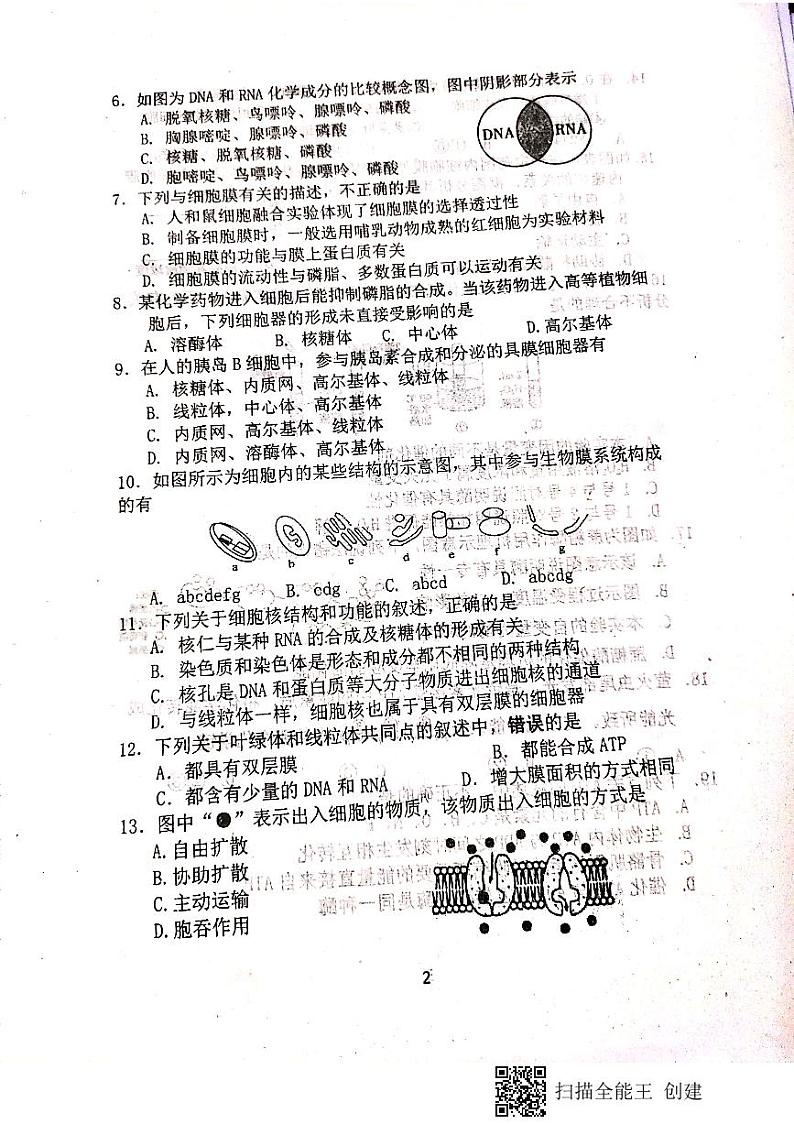 6. 如图为 DNA 和 RNA 化学成分的比较概念图，图中阴影部分表示
A. 脱氧核糖、鸟嘌呤、腺嘌呤、磷酸
B. 胸腺嘧啶、腺嘌呤、磷酸
C. 核糖、脱氧核糖、磷酸
D. 胞嘧啶、鸟嘌呤、腺嘌呤、磷酸
DNA RNA
7. 下列与细胞膜有关的描述，不正确的是
A. 人和鼠细胞融合实验体现了细胞膜的选择透过性
B. 制备细胞膜时，一般选用哺乳动物成熟的红细胞为实验材料
C. 细胞膜的功能与膜上蛋白质有关
D. 细胞膜的流动性与磷脂、多数蛋白质可以运动有关
8. 某化学药物进入细胞后能抑制磷脂的合成。当该药物进入高等植物细
胞后，下列细胞器的形成未直接受影响的是
A. 溶酶体 B. 核糖体 C. 中心体 D.高尔基体
9. 在人的胰岛 B 细胞中，参与胰岛素合成和分泌的具膜细胞器有
A. 核糖体、内质网、高尔基体、线粒体
B. 线粒体，中心体、高尔基体
C. 内质网、高尔基体、线粒体
D. 内质网、溶酶体、高尔基体
10. 如图所示为细胞内的某些结构的示意图，其中参与生物膜系统构成
的有
a b c d e f g
A. abcdefg B. cdg C. abcd D. abcdg
11. 下列关于细胞核结构和功能的叙述，正确的是
A. 核仁与某种 RNA 的合成及核糖体的形成有关
B. 染色质和染色体是形态和成分都不相同的两种结构
C. 核孔是 DNA 和蛋白质等大分子物质进出细胞核的通道
D. 与线粒体一样，细胞核也属于具有双层膜的细胞器
12. 下列关于叶绿体和线粒体共同点的叙述中，错误的是
A. 都具有双层膜 B. 都能合成 ATP
C. 都含有少量的 DNA 和 RNA D. 增大膜面积的方式相同
13. 图中“●”表示出入细胞的物质，该物质出入细胞的方式是
A.自由扩散
B.协助扩散
C.主动运输
D.胞吞作用
2
扫描全能王 创建